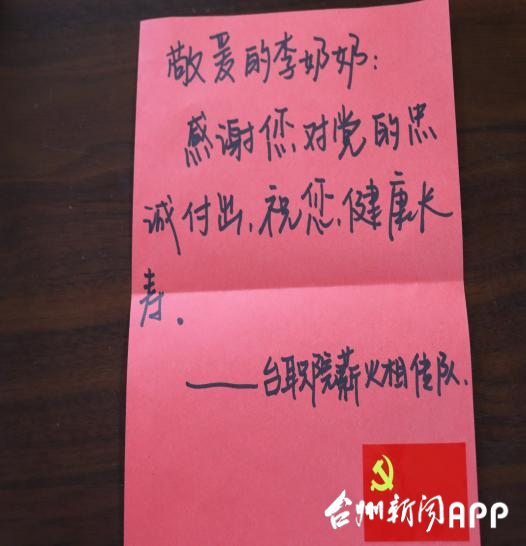 敬爱的李奶奶：
感谢您对党的忠
诚付出，祝您，健康长
寿。
——台职院薪火相传队.
台州新闻APP